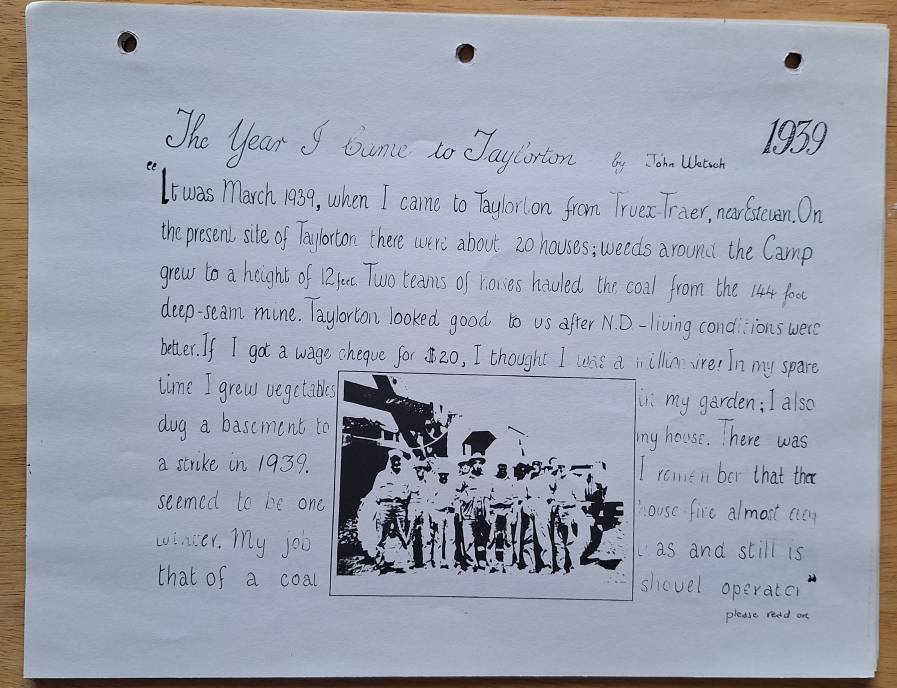 The Year I Came to Taylorton by John Wetsch 1939
"It was March 1939, when I came to Taylorton from Truex-Traer, near Estevan. On
the present site of Taylorton there were about 20 houses; weeds around the Camp
grew to a height of 12 feet. Two teams of horses hauled the coal from the 144 foot
deep-seam mine. Taylorton looked good to us after N.D - living conditions were
better. If I got a wage cheque for $20, I thought I was a millionaire! In my spare
time I grew vegetables in my garden; I also
dug a basement to my house. There was
a strike in 1939. I remember that there
seemed to be one house fire almost every
winter. My job was and still is
that of a coal shovel operator"
please read on